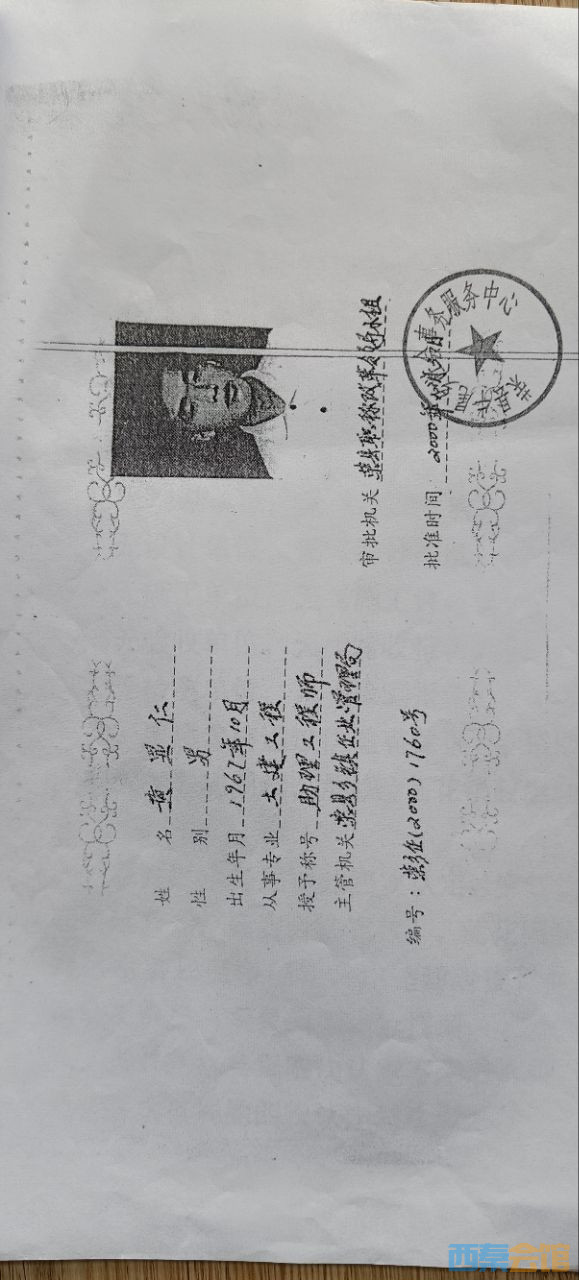 姓 名 黄显仁
性 别 男
出生年月 1967年10月
从事专业 土建工程
授予称号 助理工程师
主管机关 荣县乡镇企业管理局
编号：荣乡企(2000)1760号
审批机关 荣县职称改革领导小组
批准时间: 2000年
事务服务中心